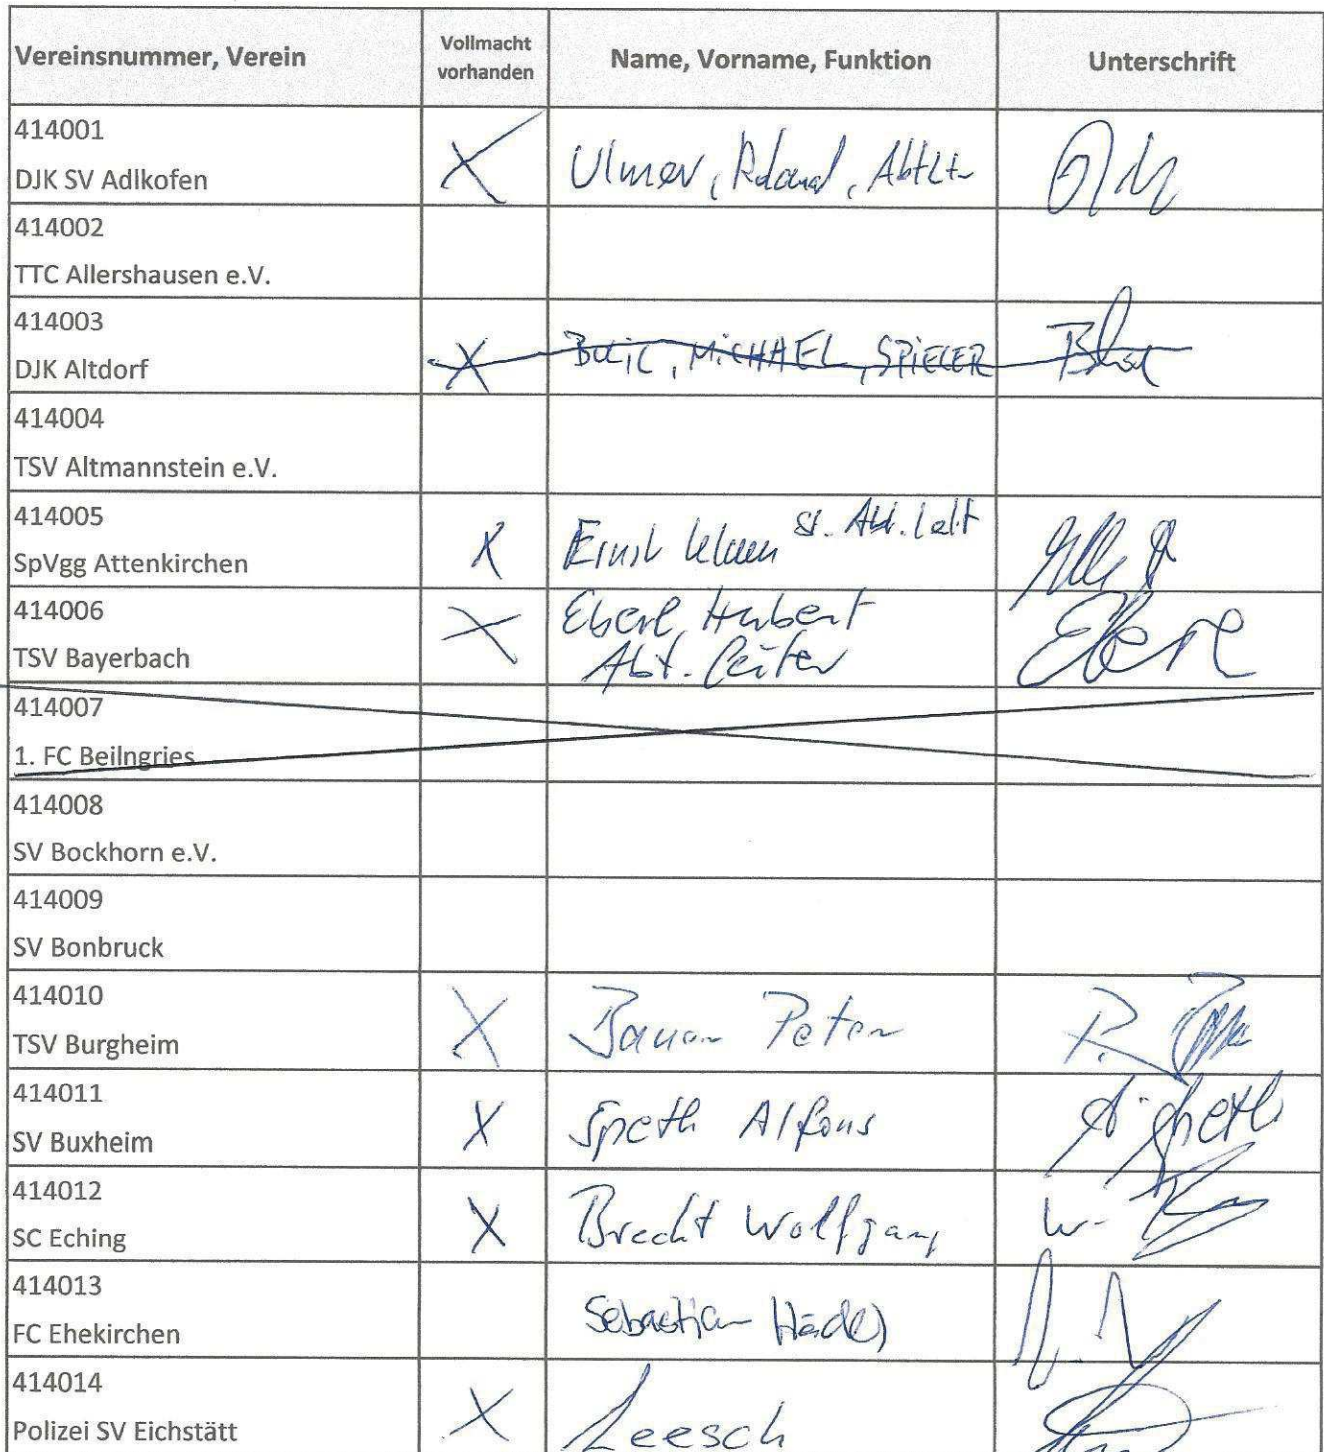 Vereinsnummer, Verein
Vollmacht vorhanden
Name, Vorname, Funktion
Unterschrift
414001
DJK SV Adlkofen
X
Ulmer, Roland, AbtLtr
414002
TTC Allershausen e.V.
414003
DJK Altdorf
X
MICHAEL, SPIELER
414004
TSV Altmannstein e.V.
414005
SpVgg Attenkirchen
X
Ernst
St. Abt. Leit
414006
TSV Bayerbach
X
Eberl, Hubert
Abt. Leiter
Eberl
414007
1. FC Beilngries
414008
SV Bockhorn e.V.
414009
SV Bonbruck
414010
TSV Burgheim
X
Bauer Peter
P.
414011
SV Buxheim
X
Speth Alfons
A. Speth
414012
SC Eching
X
Brecht Wolfgang
W.
414013
FC Ehekirchen
Sebastian
414014
Polizei SV Eichstätt
X
Leesch